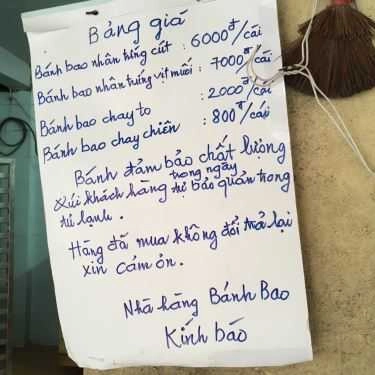 Bảng giá
Bánh bao nhân trứng cút : 6000đ/cái
Bánh bao nhân trứng vịt muối : 7000đ/cái
Bánh bao chay to : 2000đ/cái
Bánh bao chay chiên : 800đ/cái
Bánh đảm bảo chất lượng
trong ngày
Xửi khách hàng tự bảo quản trong
tủ lạnh.
Hàng đã mua không đổi trả lại
xin cám ơn.
Nhà hàng Bánh Bao
Kính báo